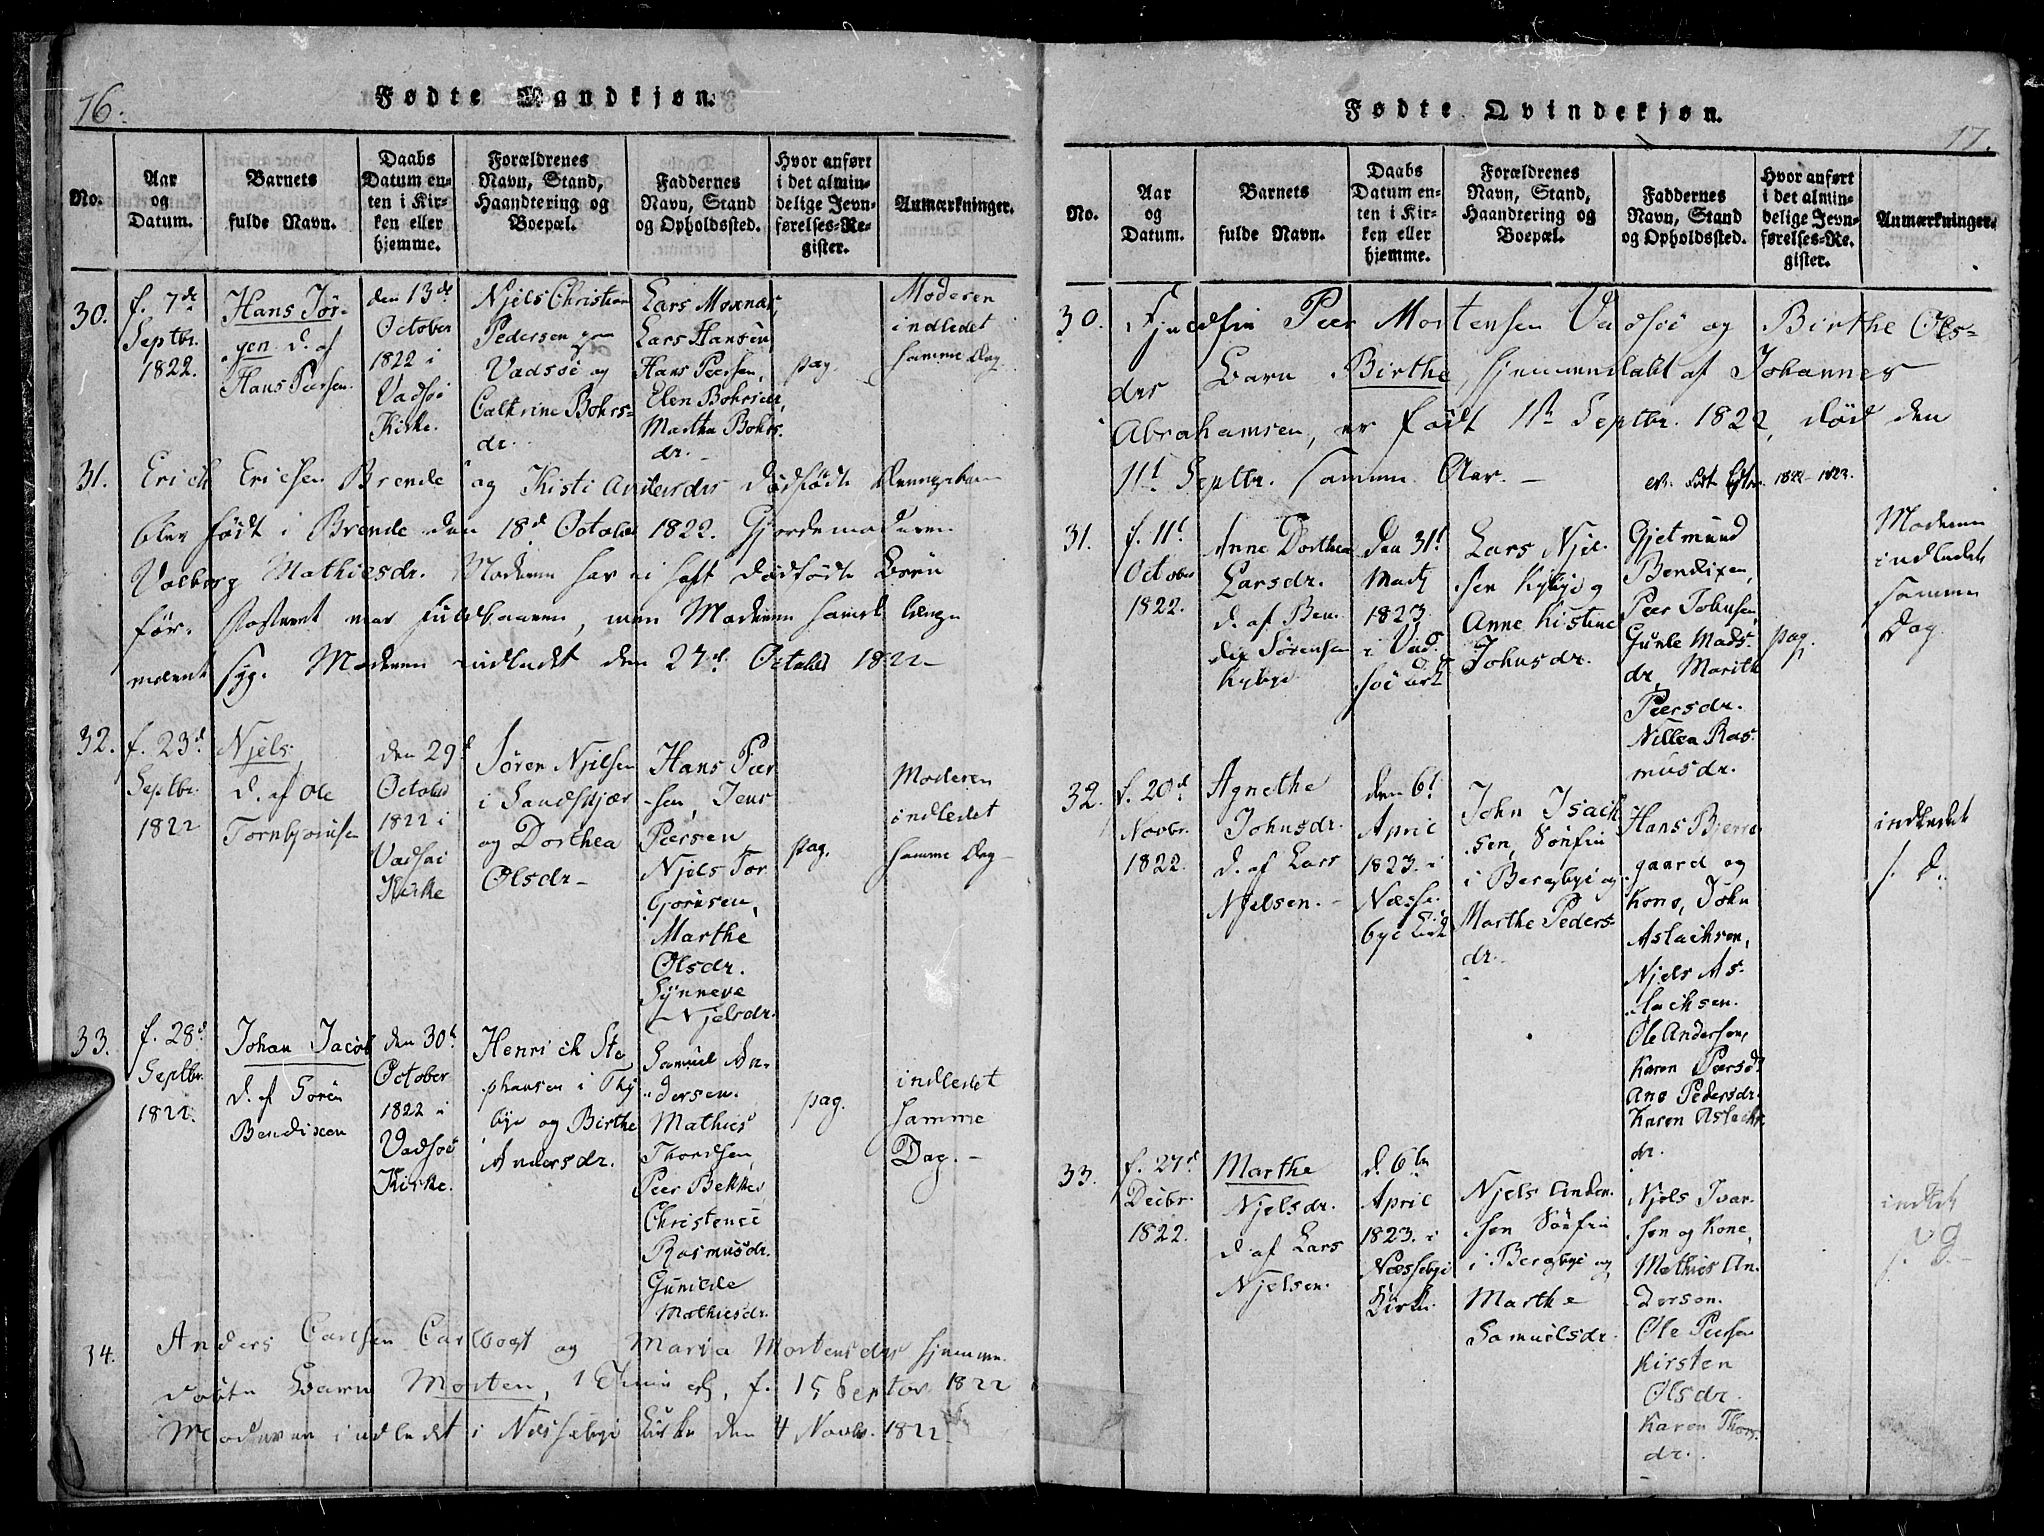 16.
Fødte Mandkjøn.
No.
Aar
og
Datum.
Barnets
fulde Navn.
Daabs
Datum en-
ten i Kir-
ken eller
hjemme.
Forældrenes
Navn, Stand,
Haandtering og
Boepæl.
Faddernes
Navn, Stand
og Opholdssted.
Hvor anført
i det almin-
delige Jevn-
førelses-Re-
gister.
Anmærkninger.
30.
f. 7de
Septbr.
1822.
Hans Jør-
gen d. af
Hans Peersen.
den 13de
October
1822 i
Vadsöe
Kirke.
Njels Christian
Pedersen
Vadsöe og
Cathrine Bohrs-
dr.
Lars Moxnæs,
Lars Hansen,
Hans Peersen,
Elen Bohrsdr,
Martha Bohrs-
dr. -
pag.
Moderen
indledet
samme Dag.
31.
Erich Erichsen Brende og Kisti Andersdrs dödfödte Drengebarn
blev födt i Brende den 18d October 1822. Gjordemoderen
Valborg Mathiesdr. Moderen har ei haft dödfödte Börn
för. Fosteret var fuldbaaren, men Moderen havde længe
syg. Moderen indledet den 27d October 1822 -
32.
f. 23d
Septbr.
1822
Njels
d. af Ole
Tornbjörnsen
den 29d
October
1822 i
Vadsöe
Kirke
Sören Njelsen
i Sandskjær
og Dorthea
Olsdr -
Hans Peer
-sen, Jens
Peersen
Njels Tor
bjornsen,
Marthe
Olsdr.
Synneve
Njelsdr.
pag.
Moderen
indledet
samme Dag -
33.
f. 28d
Septbr.
1822.
Johan Jacob
d. af Sören
Bendixen
den 30te
October
1822 i
Vadsöe
Kirke.
Henrich Ste
phansen i Thy
bye og Birthe
Andersdr.
Samuel An-
dersen.
Mathies
Thordsen,
Peer Bekker
Christence
Rasmusdr.
Gunilde
Mathiesdr.
pag.
indledet
samme
Dag. -
34.
Anders Carlsen Carlvogt og Maria Mortensdrs hjemme-
döbte Barn Morten, f. 15 Septbr 1822
Moderen indledet i Nessebye Kirke den 4 Novbr. 1822
17.
Fødte Qvindekjøn.
No.
Aar
og
Datum.
Barnets
fulde Navn.
Daabs
Datum en-
ten i Kir-
ken eller
hjemme.
Forældrenes
Navn, Stand,
Haandtering og
Boepæl.
Faddernes
Navn, Stand
og Opholdssted.
Hvor anført
i det almin-
delige Jevn-
førelses-Re-
gister.
Anmærkninger.
30.
Peer Mortensen Vadsöe og Birthe Ols-
drs Barn Birthe, hjemmedöbt af Johannes
Abrahamsen, er födt 1te Septbr. 1822, död den
11t Septbr. samme Aar. - 1822 - 1823.
31.
f. 11t
October
1822.
Anne Dorthea
Larsdr.
d. af Ben-
dix Sörensen
Kybye
den 31t
Martz
1823
i Vad-
söe Kirke
Lars Njel-
sen Kybye og
Anne Kistine
Johnsdr.
Gjetmund
Bendixen,
Peer Johnsen,
Gurle Mads-
dr, Marith
Peersdr.
Nillea Ras-
musdr.
pag.
Moderen
indledet
samme
Dag.
32.
f. 20d
Novbr.
1822.
Agnethe
Johnsdr.
d. af Lars
Njelsen. -
den 6t
April
1823. i
Næsse-
bye Kirke
John Isach
sen, Söefin
i Bergbye og
Marthe Peders-
dr. -
Hans Bjerre-
gaard og
Kone, John
Aslachsen,
Njels As-
lachsen.
Ole Andersen,
Karen Peersdr
Ane Pedersdr.
Karen Aslachs
dr.
indledet
s. D.
33.
f. 27d
Decbr.
1822.
Marthe
Njelsdr.
d. af Lars
Njelsen.
d. 6te
April
1823. i
Næssebye
Kirke.
Njels Ander-
sen Söefin
i Bergbye og
Marthe
Samuelsdr.
Njels Ivar-
sen og Kone,
Mathies An-
dersen.
Ole Peersen
Kirsten
Olsdr.
Karen Thors-
dr.
indledet
s. D.